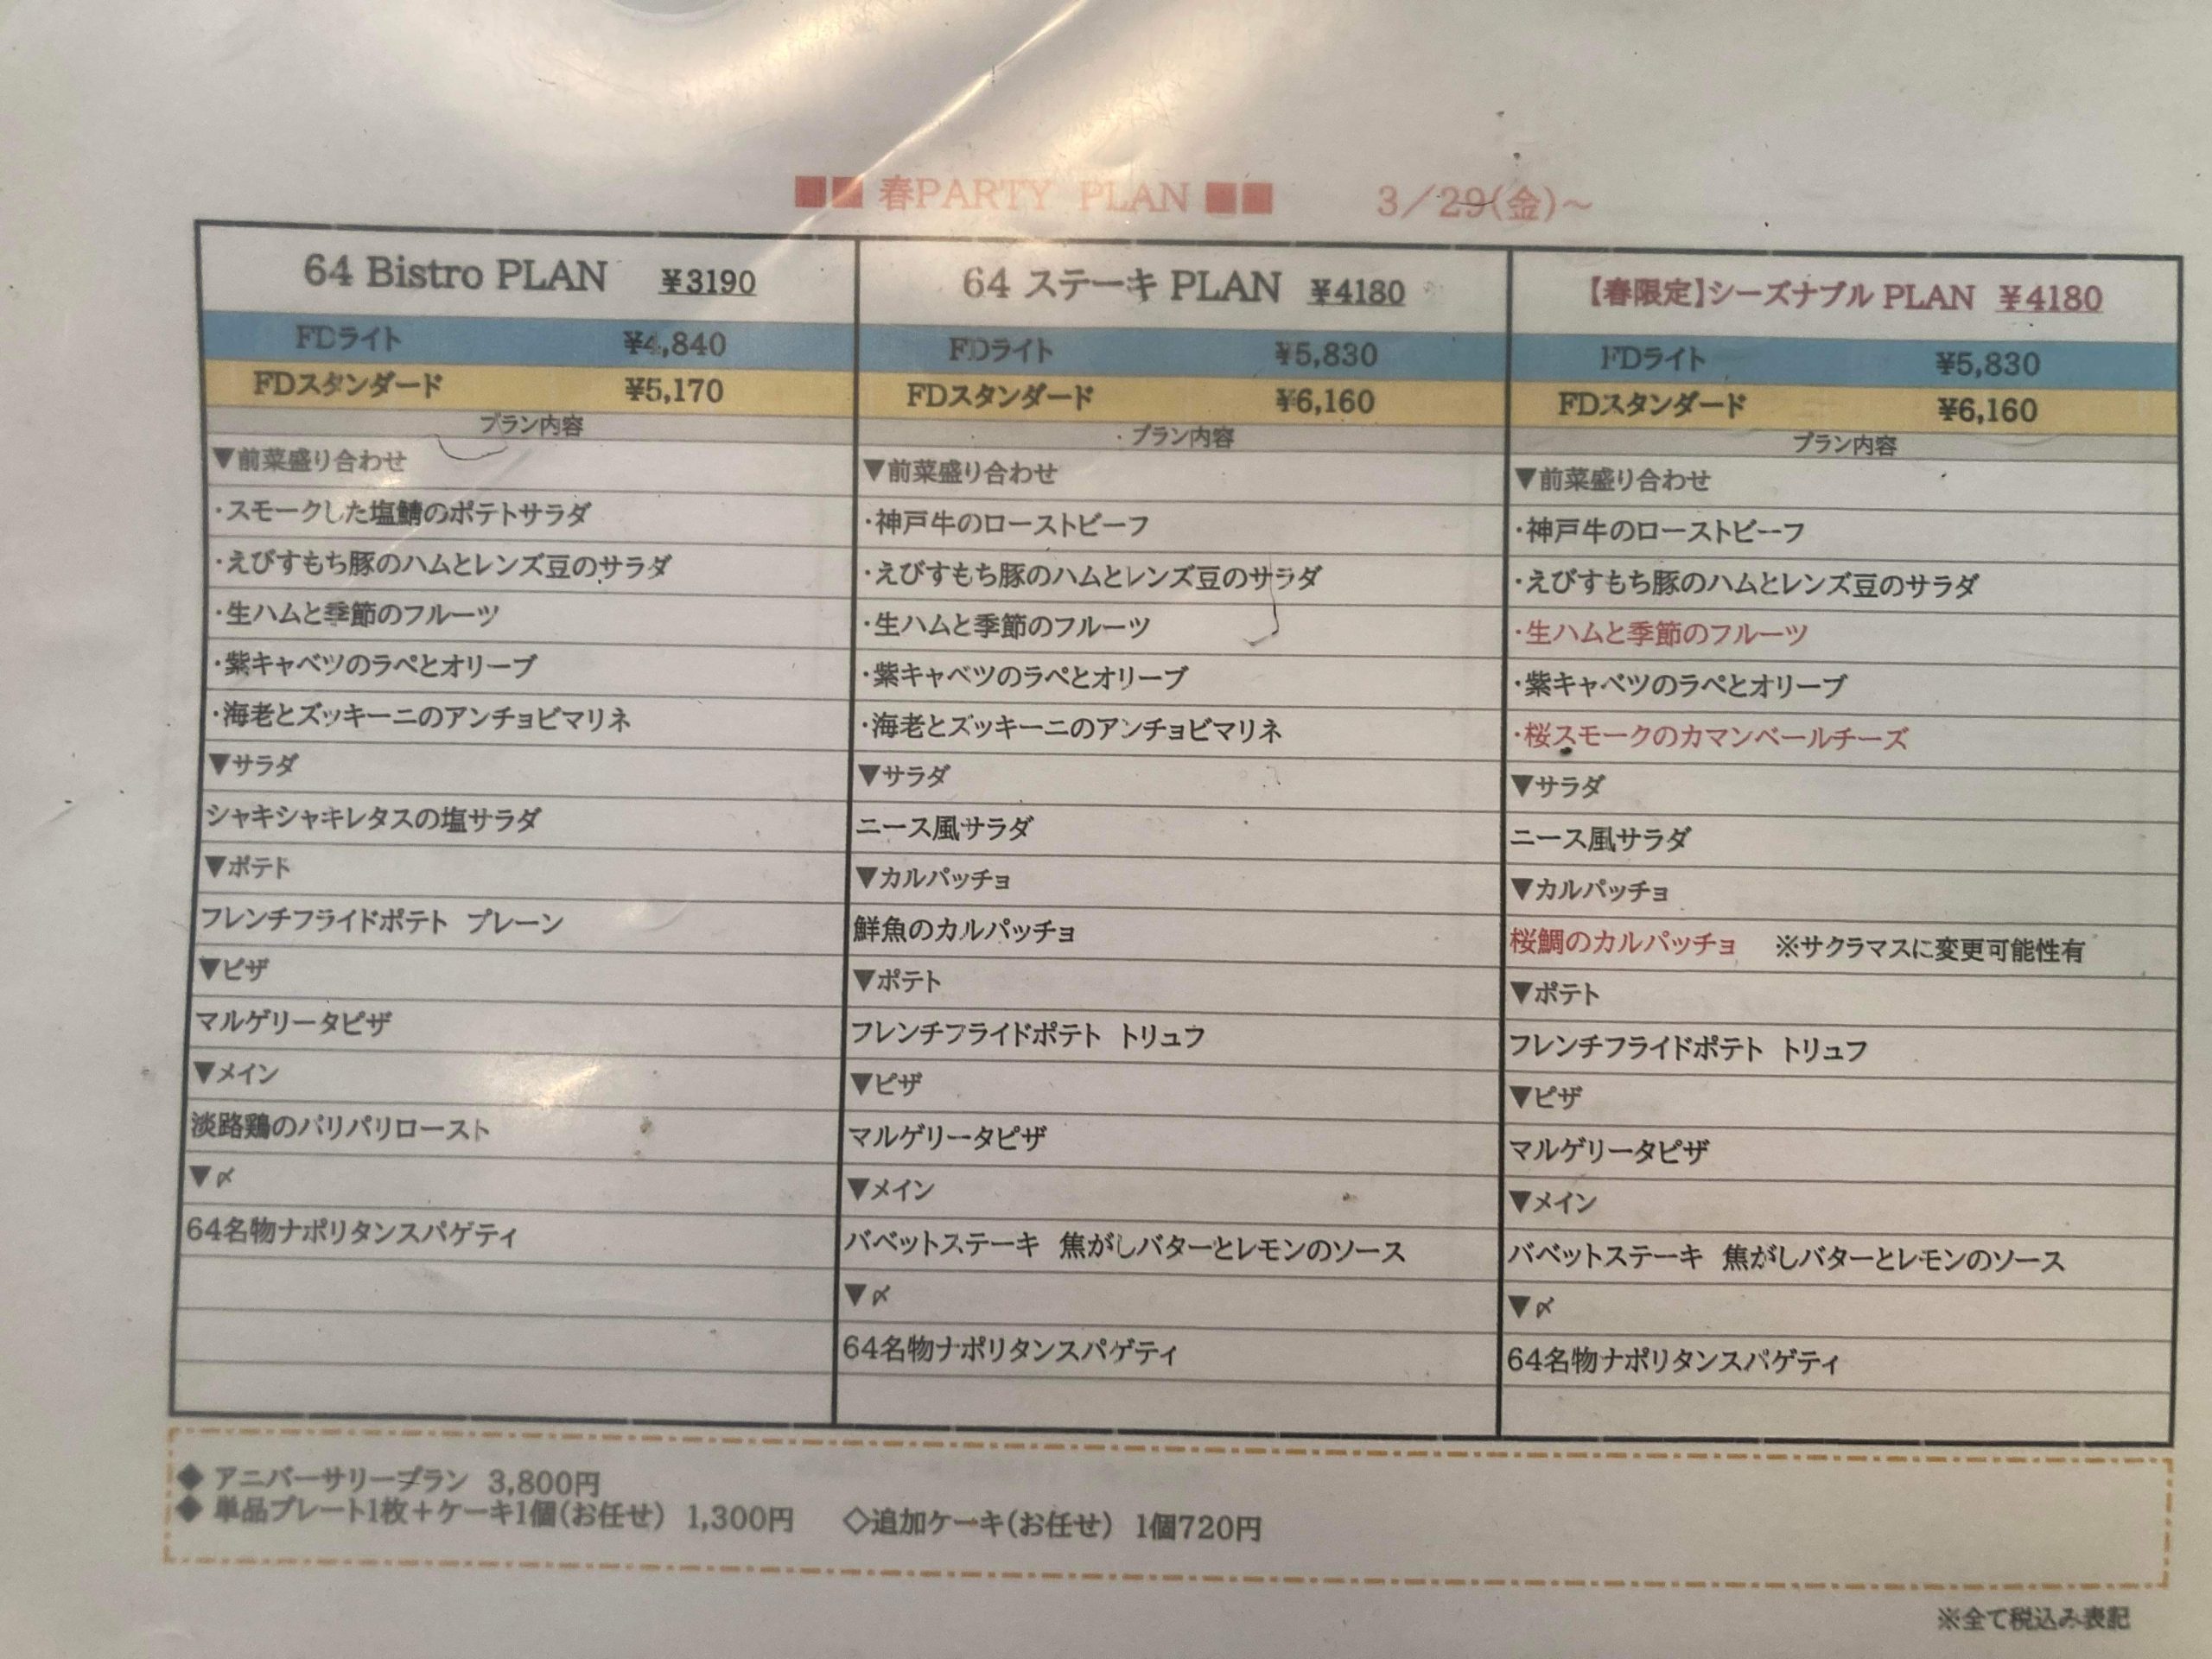 ■■ 春PARTY PLAN ■■ 3／29(金)～
64 Bistro PLAN ¥3190
FDライト ¥4,840
FDスタンダード ¥5,170
プラン内容
▼前菜盛り合わせ
・スモークした塩鯖のポテトサラダ
・えびすもち豚のハムとレンズ豆のサラダ
・生ハムと季節のフルーツ
・紫キャベツのラペとオリーブ
・海老とズッキーニのアンチョビマリネ
▼サラダ
シャキシャキレタスの塩サラダ
▼ポテト
フレンチフライドポテト プレーン
▼ピザ
マルゲリータピザ
▼メイン
淡路鶏のパリパリロースト
▼〆
64名物ナポリタンスパゲティ
64 ステーキ PLAN ¥4180
FDライト ¥5,830
FDスタンダード ¥6,160
プラン内容
▼前菜盛り合わせ
・神戸牛のローストビーフ
・えびすもち豚のハムとレンズ豆のサラダ
・生ハムと季節のフルーツ
・紫キャベツのラペとオリーブ
・海老とズッキーニのアンチョビマリネ
▼サラダ
ニース風サラダ
▼カルパッチョ
鮮魚のカルパッチョ
▼ポテト
フレンチフライドポテト トリュフ
▼ピザ
マルゲリータピザ
▼メイン
バベットステーキ 焦がしバターとレモンのソース
▼〆
64名物ナポリタンスパゲティ
【春限定】シーズナブル PLAN ¥4180
FDライト ¥5,830
FDスタンダード ¥6,160
プラン内容
▼前菜盛り合わせ
・神戸牛のローストビーフ
・えびすもち豚のハムとレンズ豆のサラダ
・生ハムと季節のフルーツ
・紫キャベツのラペとオリーブ
・桜スモークのカマンベールチーズ
▼サラダ
ニース風サラダ
▼カルパッチョ
桜鯛のカルパッチョ ※サクラマスに変更可能性有
▼ポテト
フレンチフライドポテト トリュフ
▼ピザ
マルゲリータピザ
▼メイン
バベットステーキ 焦がしバターとレモンのソース
▼〆
64名物ナポリタンスパゲティ
◆ アニバーサリープラン 3,800円
◆ 単品プレート1枚＋ケーキ1個(お任せ) 1,300円 ◇追加ケーキ(お任せ) 1個720円
※全て税込み表記